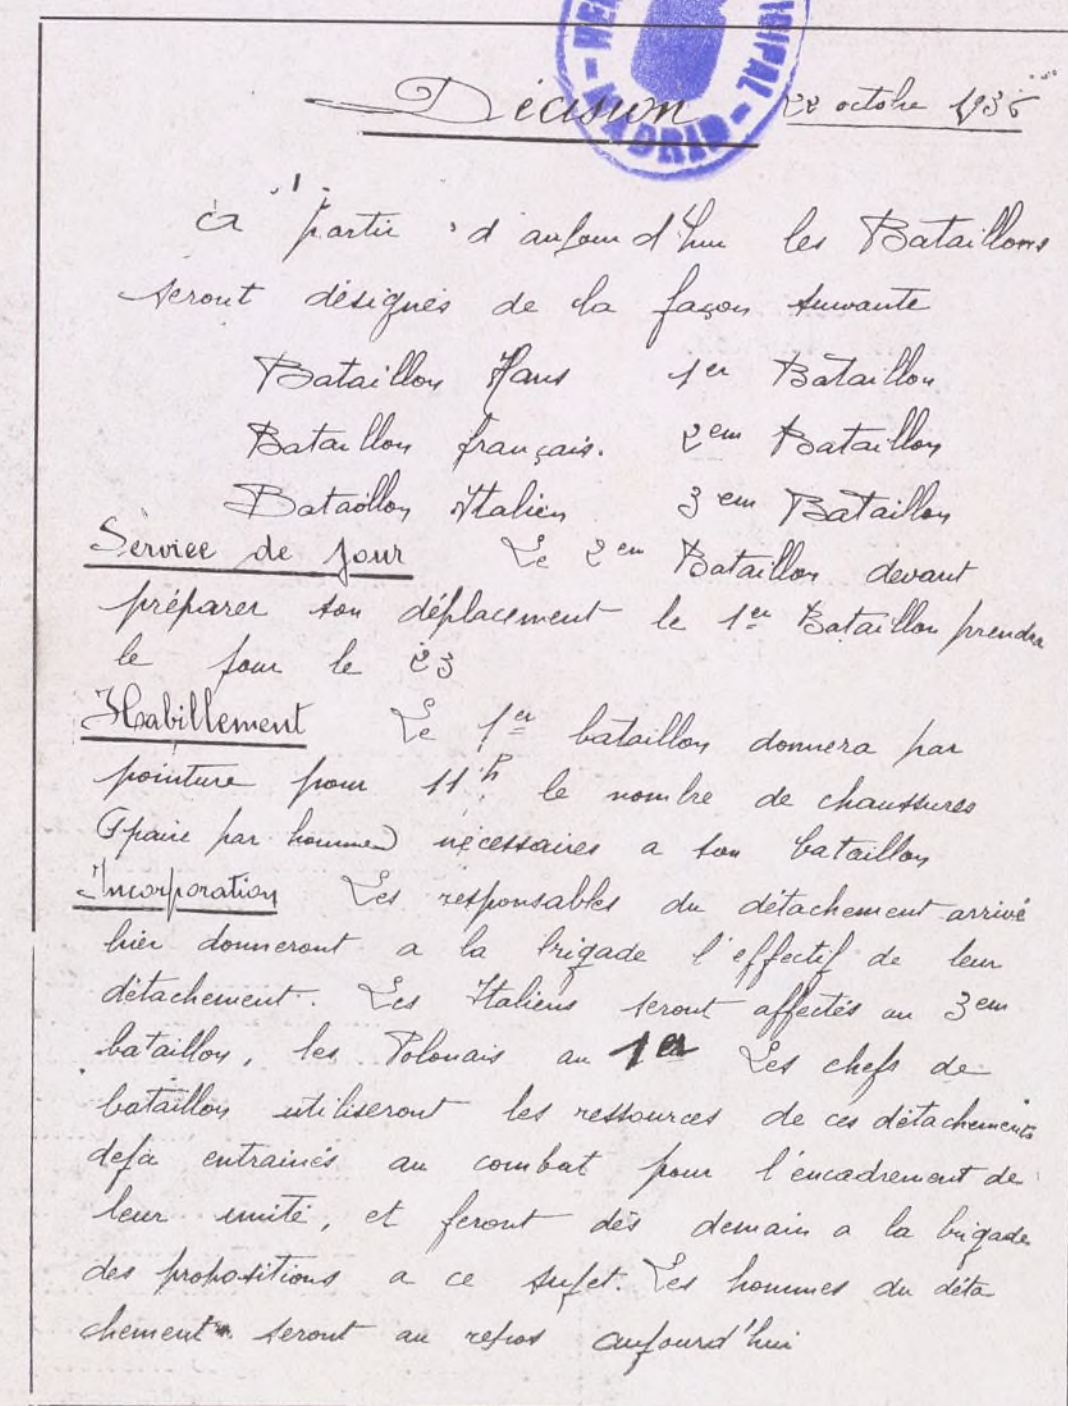 Décision 22 octobre 1936
a partir d'aujourd'hui les Bataillons
seront désignés de la façon suivante
Bataillon Hans 1er Bataillon
Bataillon français. 2em Bataillon
Bataillon Italien 3em Bataillon
Service de jour Le 2em Bataillon devant
préparer son déplacement le 1er Bataillon prendra
le jour le 23
Habillement Le 1er bataillon donnera par
pointure pour 11h le nombre de chaussures
(1 paire par homme) nécessaires a son bataillon
Incorporation Les responsables du détachement arrivé
hier donneront a la brigade l'effectif de leur
détachement. Les Italiens seront affectés au 3em
bataillon, les Polonais au 1er Les chefs de
bataillon utiliseront les ressources de ces détachements
deja entrainés au combat pour l'encadrement de
leur unité, et feront dès demain a la brigade
des propositions a ce sujet. Les hommes du déta
chement seront au repos aujourd'hui
MADRID